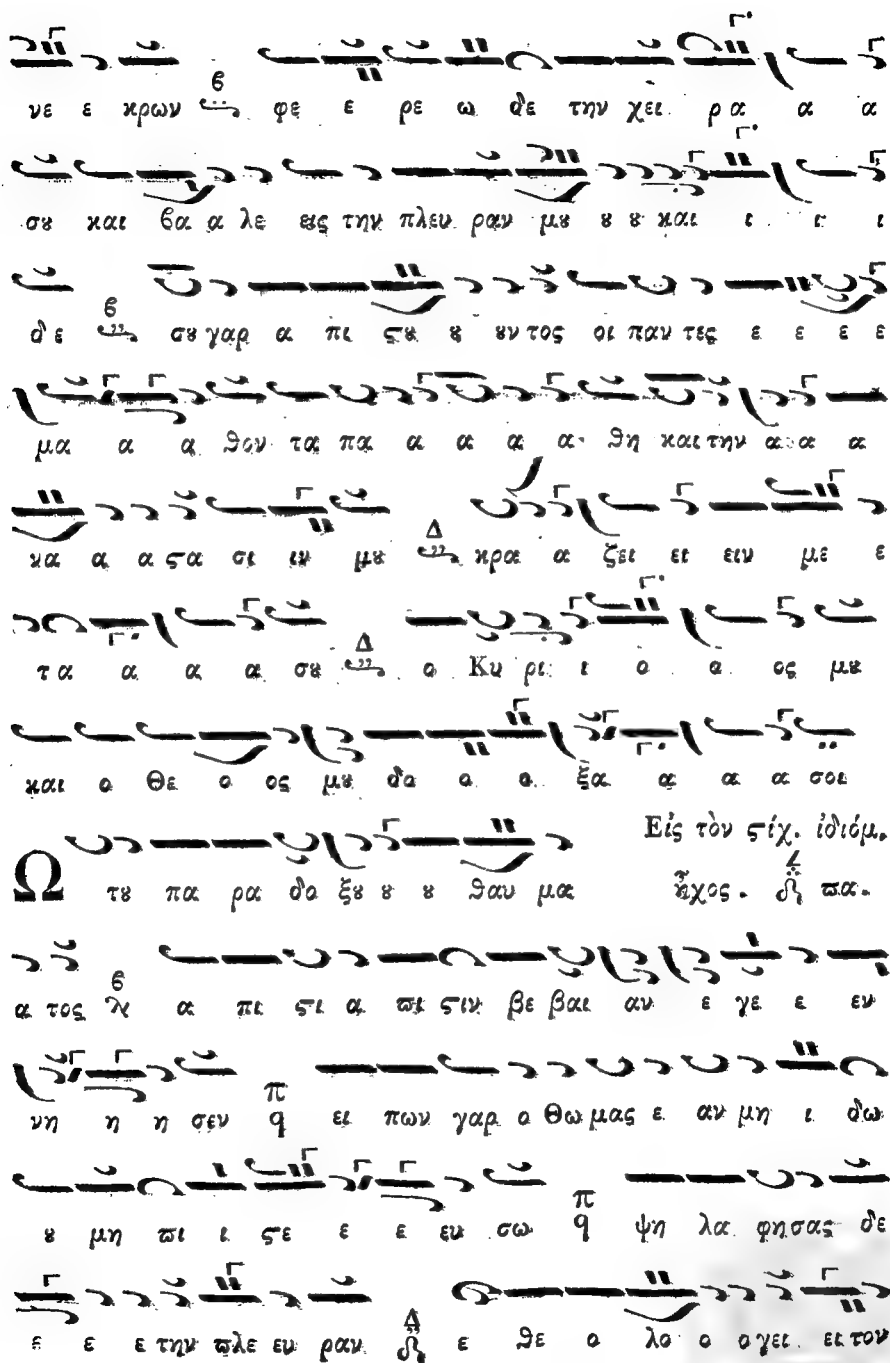 νε ε κρων φε ε ρε ω δε την χει ρα α α
σȣ και βα α λε εις την πλευ ραν μȣ ȣ ȣ και ι ι ι
δε σȣ γαρ α πι ϛȣ ȣ ȣν τος οι παν τες ε ε ε ε
μα α α θον τα πα α α α α θη και την α α α
κα α α ϛα σι ιν μȣ Δ κρα α ζει ει ειν με ε
τα α α α σȣ Δ ο Κυ ρι ι ο ο ος μȣ
και ο Θε ο ος μȣ δο ο ο ξα α α α σοι
Εἰς τὸν ϛίχ. ἰδιόμ.
Ω τȣ πα ρα δο ξȣ ȣ ȣ θαυ μα ἦχος. πα.
α τος α πι ϛι α πι ϛιν βε βαι αν ε γε ε εν
νη η η σεν π q ει πων γαρ ο Θω μας ε αν μη ι δω
ȣ μη πι ι ϛε ε ε ευ σω π q ψη λα φησας δε
ε ε ε την πλε ευ ραν Δ ε θε ο λο ο ο γει ει τον